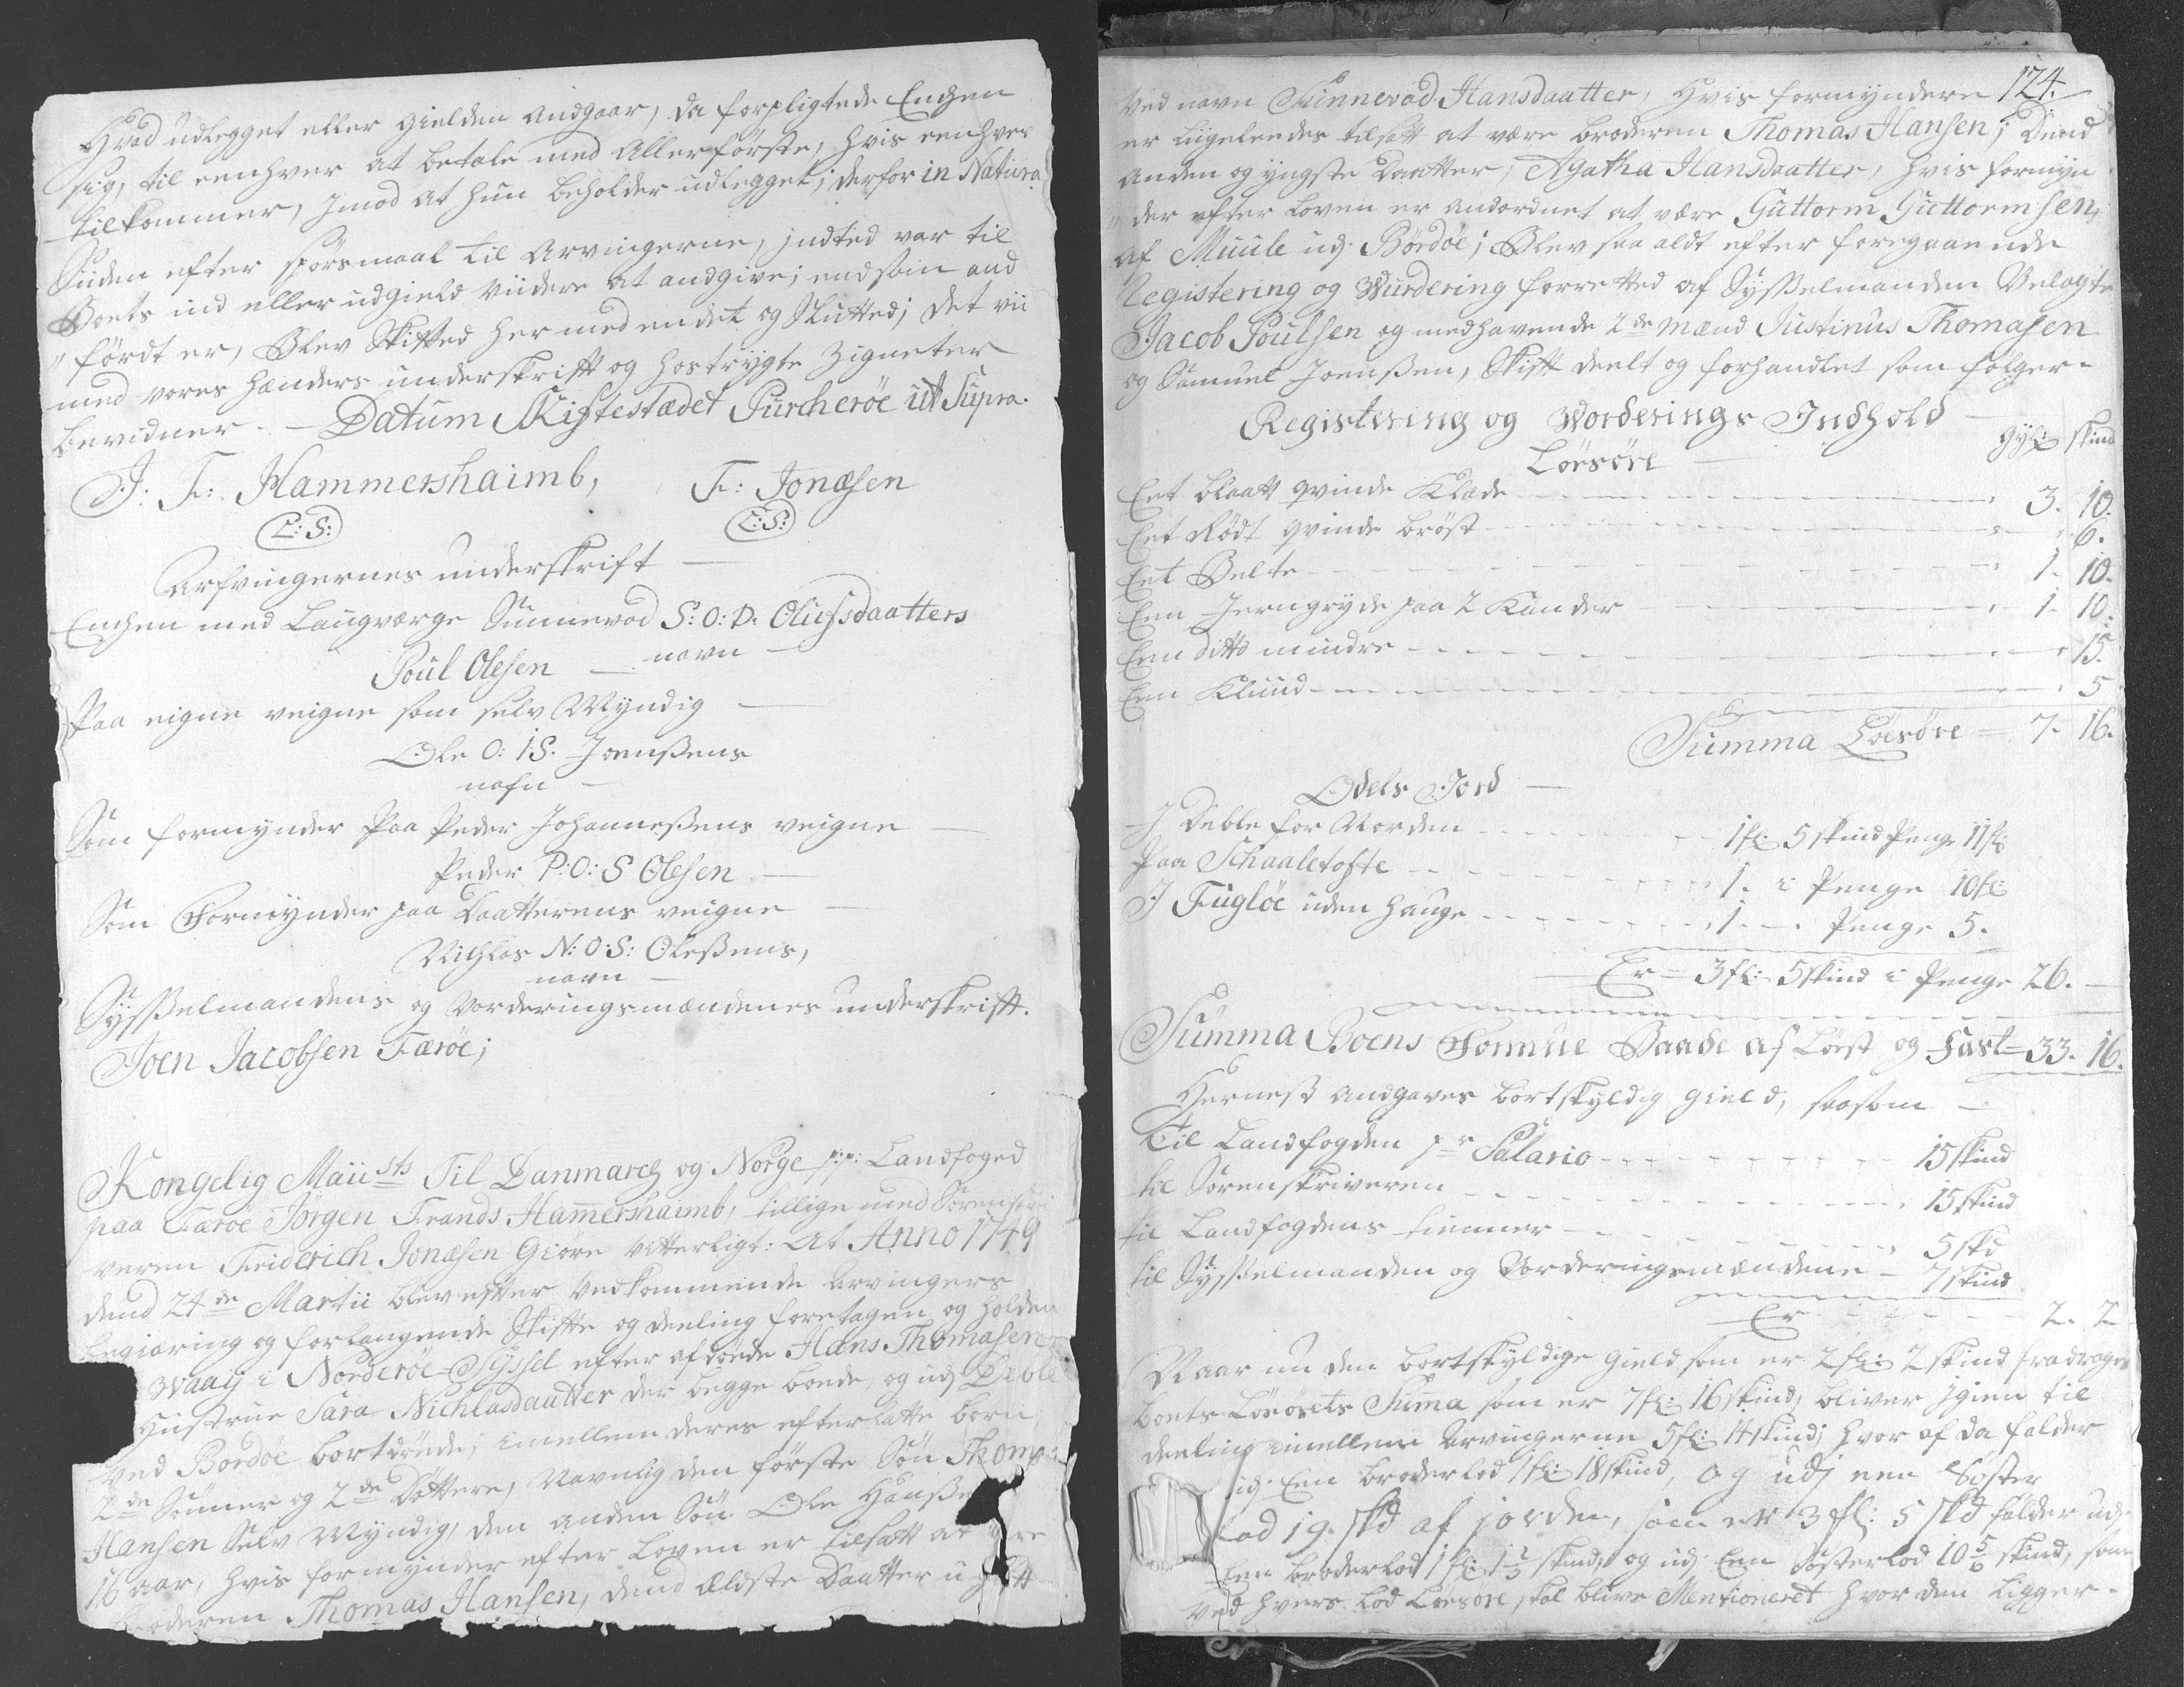 Hvad udlegget eller gielden andgaar, da forpligtede Enchen
sig, til eenhver at betale med Allerförste, hvis eenhver
tilkommer, Jmod at hun beholder udlegget; derfor in Natura
Siiden efter spörsmaal til Arvingerne, jndted var til
Boets ind eller udgield viidere at andgive; endsom and
" fördt er, Blev Skifted hermed endet og Slutted; det vii
med vores hænders underskrifft og hostrygte Zigneter
bevidner. - Datum Skiftestædet Purcheröe ut Supra.
J: F: Hammershaimb, F: Jonæsen
L:S: L:S:
Arfvingernes underskrift
Enchen med Laugværge Sunnevod S:O:D: Olufsdaatters
Poul Olesen navn
Paa eigne veigne som selv Myndig
Ole O: I S. Joenßens
nafn
Som formynder Paa Peder Johanneßens veigne
Peder P:O:S Olesen
Som Formynder paa Daatterens veigne
Nichlas N:O:S: Oleßens,
navn
Syßelmandens og Vorderingsmændenes underskrifft.
Joen Jacobsen Færöe;
Kongelig Maii sts Til Danmarch og Norge p:p: Landfoged
paa Færöe Jörgen Frands Hamershaimb, tillige med Sorenskri
veren Friderich Jonæsen Giöre vitterligt: At Anno 1749
dend 24 de Martii blev efter Vedkommende Arvingers
begiæring og forlangende Skifte og deeling foretagen og holden
Waaij i Norderöe-Syssel efter afdöede Hans Thomasen
Hustrue Sara Nichlasdaatter der begge boede, og udj Deble
ved Bordöe bortdöede; imellem deres efterlatte börn
2 de Sönner og 2 de Döttere, Navnlig den förste Sön Thomas
Hansen Selv Myndig, den anden Sön Ole Hanße
16 aar, hvis formynder efter Loven er tilsatt at være
broderen Thomas Hansen, dend Ældste Daatter ugift
124.
Ved navn Sunnevod Hansdaatter, Hvis formyndere
er liigeleedes tilsatt at være broderen Thomas Hansen; Dend
anden og yngste Daatter, Agatha Hansdaatter, hvis formyn
" der efter Loven er andordnet at være Guttorm Guttormsen,
af Muule udj Bördöe; Blev saa aldt efter foregaaende
Registering og Wurdering forretted af Syßelmanden Velagte
Jacob Poulsen og medhavende 2 de mænd Justinus Thomasen
og Samuel Joenßen, Skifft deelt og forhandlet som fölger-
Registering og Worderings Indhold
Löesöre gyl: skind
Eet blaatt qvinde Klæde 3. 10.
Eet Rödt qvinde bröst 6.
Eet Belte 1. 10.
Een Jerngryde paa 2 Kander 1. 10.
Een ditto mindre 15.
Een Kluud 5
Summa Löesöre = 7. 16.
Odels Jord
J Deble for Norden 1 fl: 5 skind Penge 11 fl:
Paa Schaaletofte 1. i Penge 10 fl:
J Fuglöe uden hauge 1. Penge 5.
Er = 3 fl: 5 skind i Penge 26.
Summa Boens Formue Baade af Löest og Fast = 33. 16.
Hernest andgaves bortskyldig gield, saasom
Til Landfogden pr Salario 15 skind
til Sorenskriveren 15 skind
til Landfogdens tienner 5 skd
til Sysßelmanden og Vorderingsmændene 7 skind
Er 2. 2
Naar nu den bortskyldige gield som er 2 fl: 2 skind fradrages
boets Löesörets Suma som er 7 fl: 16 skind, bliver jgien til
deeling imellem Arvingerne 5 fl: 14 skind; hvor af da falder
udj Een broderlod 1 fl: 18 skind, og udj een Söster
Lod 19. skd af jorden, som er 3 fl: 5 skd falder udj
Een broderlod 1 fl: 1 2/3 skind, og udj Een Sösterlod 10 5/6 skind, som
ved hvers Lod Löesöre skal blive Mentioneret hvor den ligger-